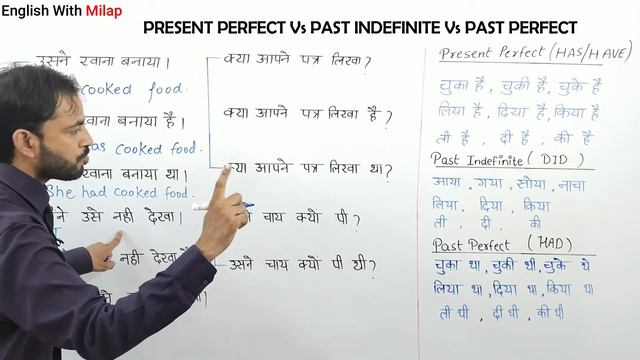 English With Milap
PRESENT PERFECT Vs PAST INDEFINITE Vs PAST PERFECT
उसने खाना बनाया।
cooked food.
खाना बनाया है।
has cooked food.
खाना बनाया था।
She had cooked food.
उसे नही देखा।
नही देखा
क्या आपने पत्र लिखा?
क्या आपने पत्र लिखा है?
क्या आपने पत्र लिखा था?
चाय क्यों पी?
उसने चाय क्यों पी थी?
Present Perfect (HAS/HAVE)
चुका है, चुकी है, चुके है
लिया है, दिया है, किया है
ती है, दी है, की है
Past Indefinite (DID)
आया, गया, सोया, नाचा
लिया, दिया, किया
ती, दी, की
Past Perfect (HAD)
चुका था, चुकी थी, चुके थे
लिया था, दिया था, किया था
ती थी, दी थी, की थी